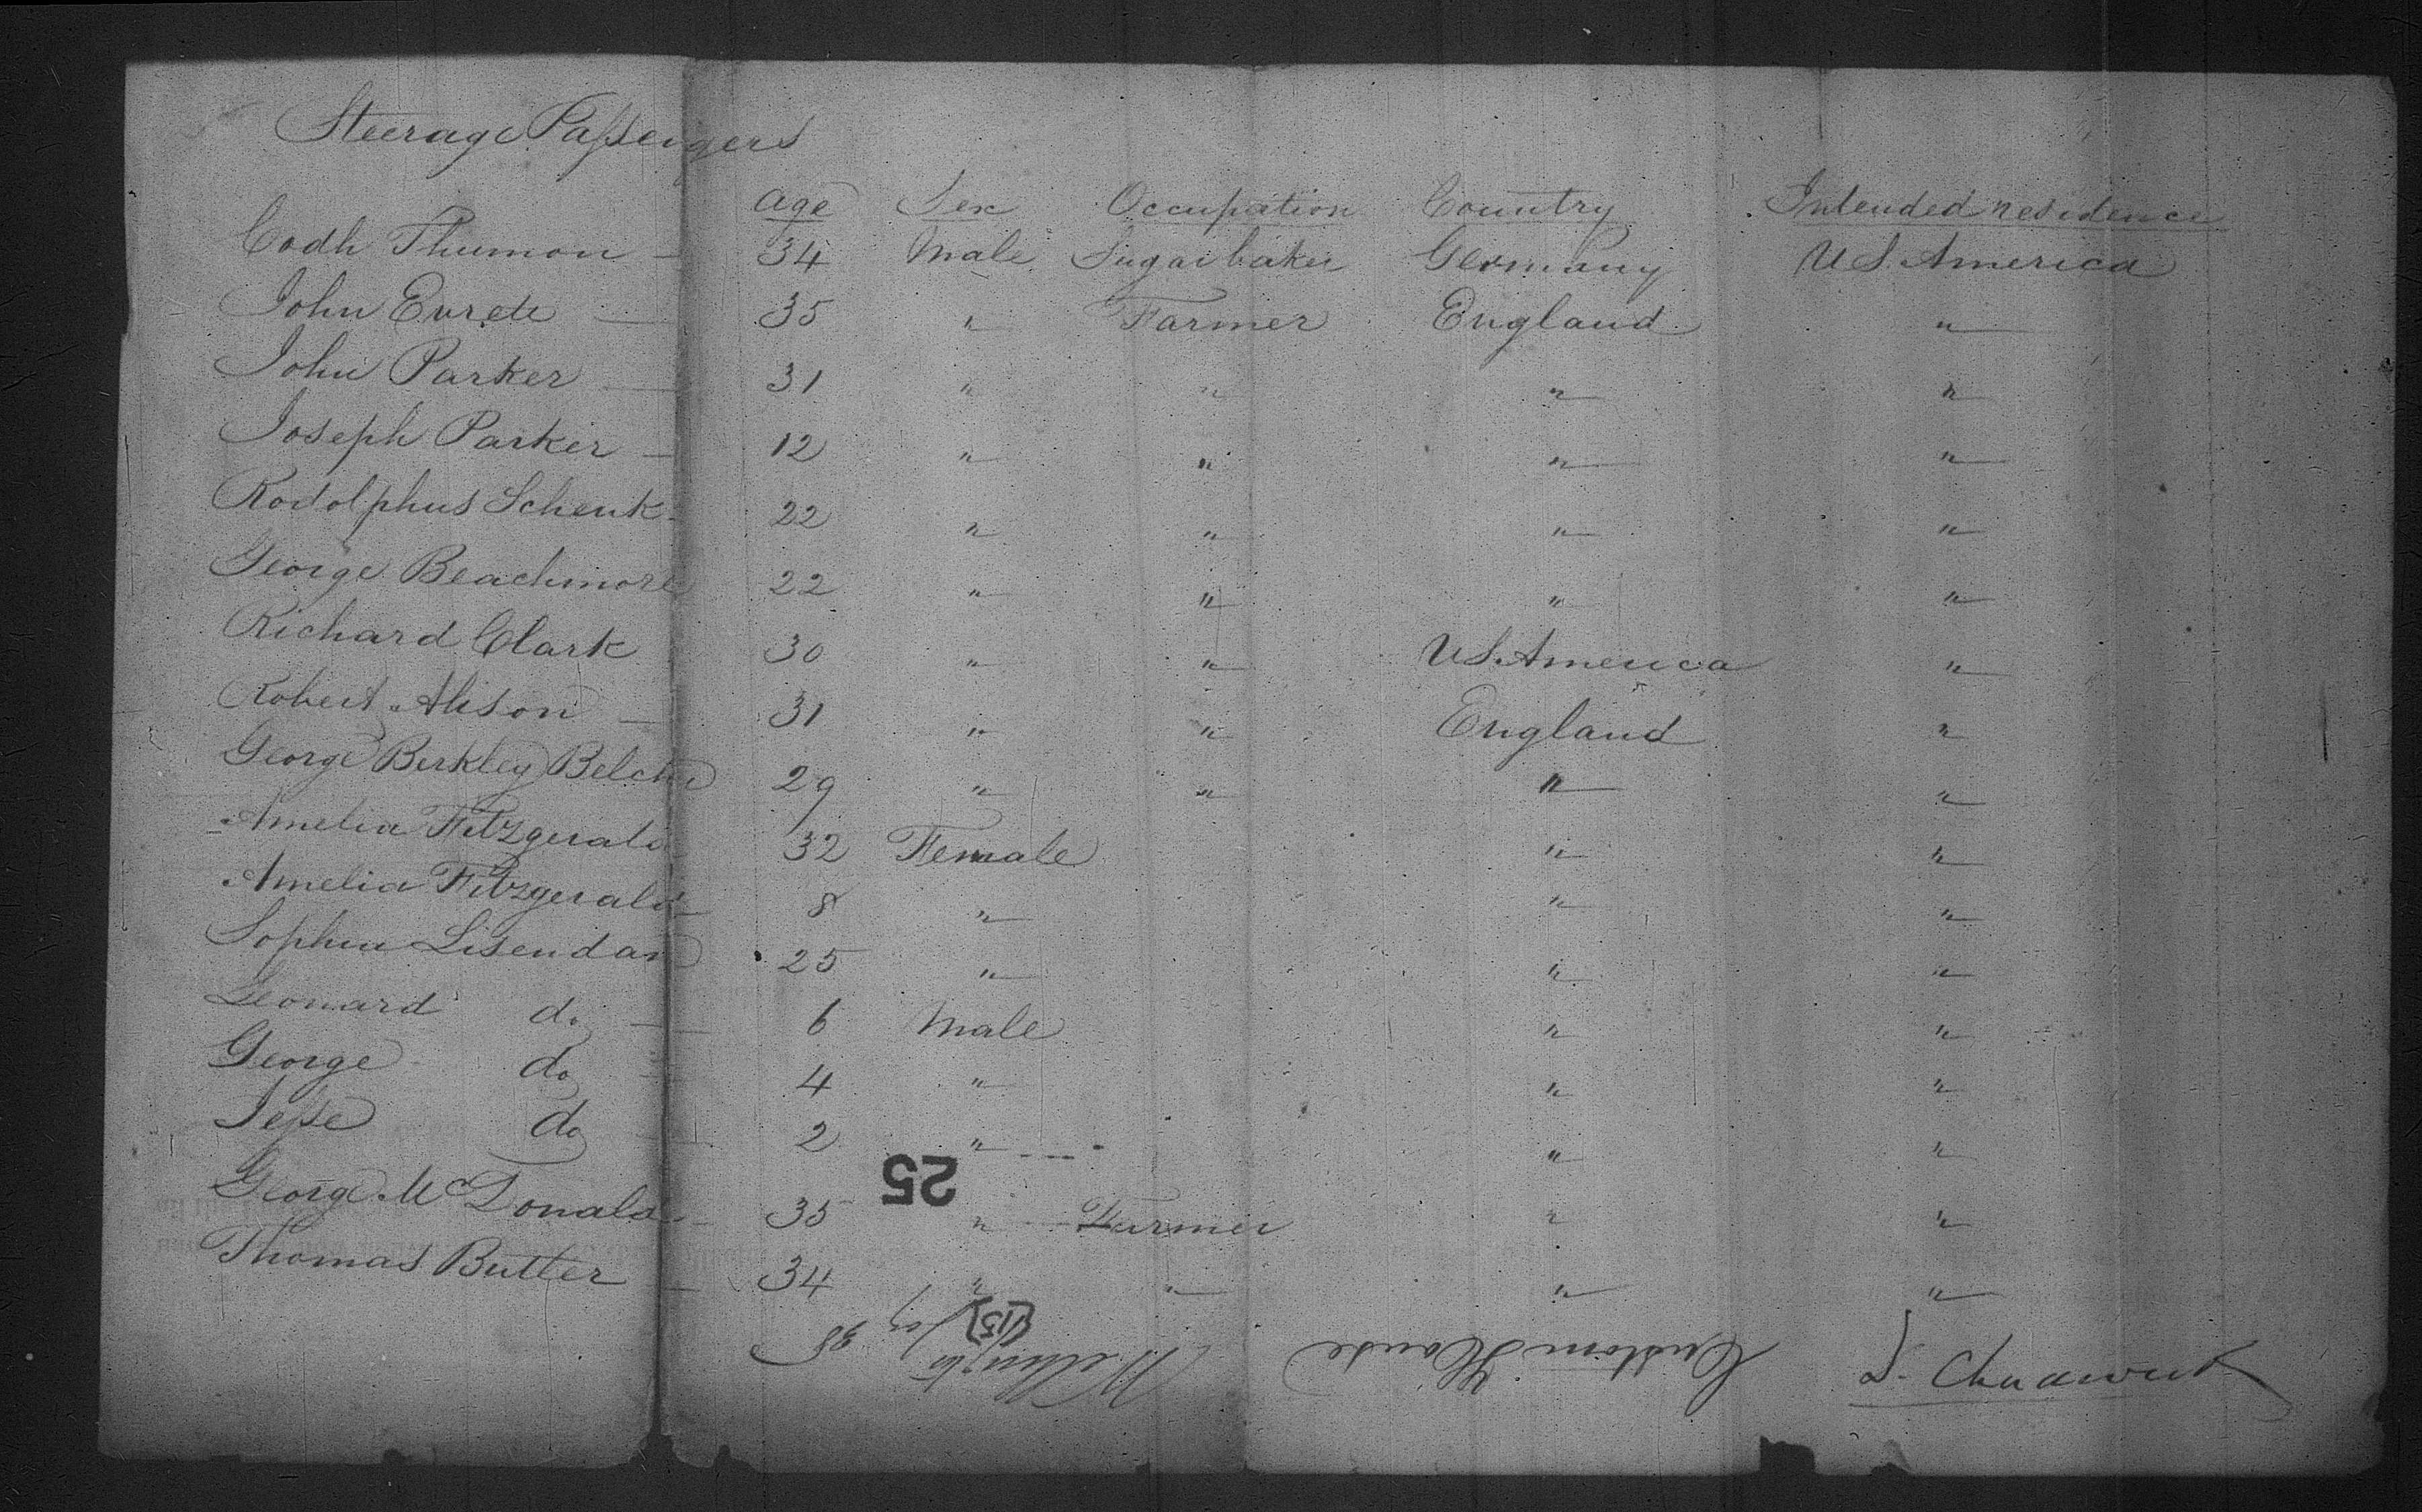 Steerage Passengers
Age Sex Occupation Country Intended residence
Codh Thumon — 34 Male Sugar baker Germany U S. America
John Evrete — 35 " Farmer England "
John Parker — 31 " " " "
Joseph Parker — 12 " " " "
Rodolphus Schenk - 22 " " " "
George Beachmore 22 " " " "
Richard Clark 30 " " U S. America "
Robert Alison — 31 " " England "
George Berkley Belcher 29 " " " "
Amelia Fitzgerald 32 Female " "
Amelia Fitzgerald — 8 " " "
Sophia Lisendan 25 " " "
Leonard do — 6 Male " "
George do 4 " " "
Jesse do 2 " " "
25
George McDonald — 35 " Farmer " "
Thomas Butler — 34 " " " "
(15)
38
Custom House